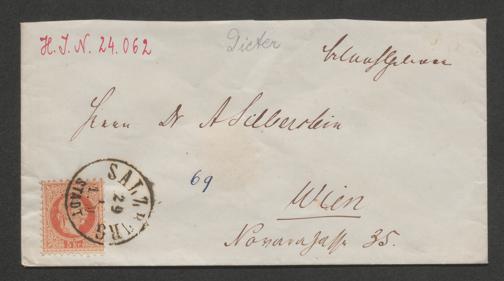 H. I. N. 24.062
Dieter
Herrn Dr A Silberstein
69
Wien
35.
SALZBURG
STADT
29
5 kr